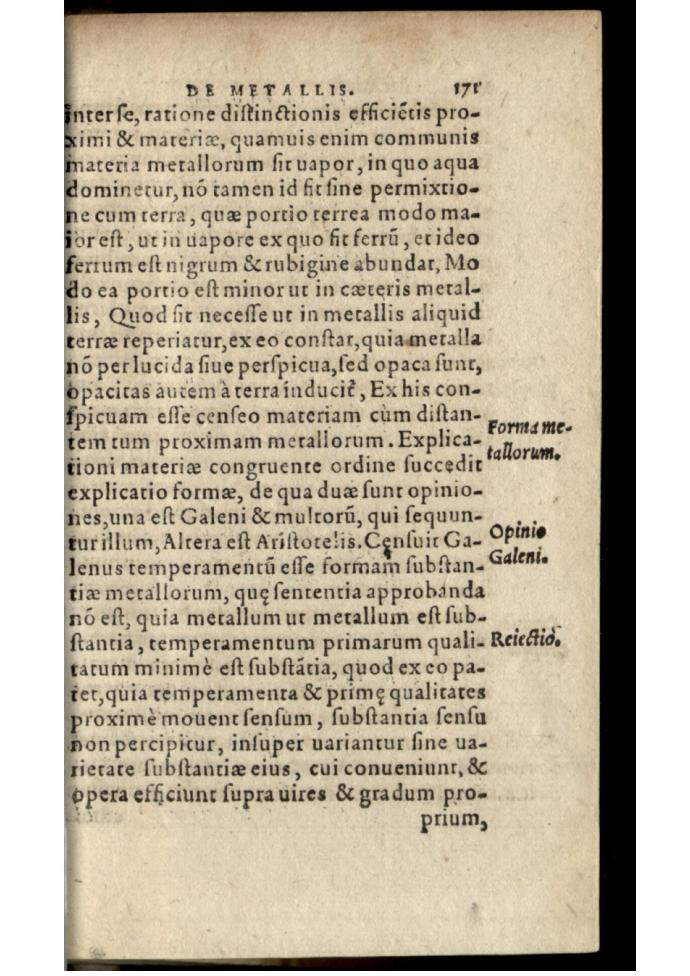 DE METALLIS. 171
inter se, ratione distinctionis efficiẽtis pro-
ximi & materiæ, quamuis enim communis
materia metallorum sit uapor, in quo aqua
dominetur, nõ tamen id fit sine permixtio-
ne cum terra, quæ portio terrea modo ma-
ior est, ut in uapore ex quo fit ferrũ, et ideo
ferrum est nigrum & rubigine abundat, Mo
do ea portio est minor ut in cæteris metal-
lis, Quod sit necesse ut in metallis aliquid
terræ reperiatur, ex eo constat, quia metalla
nõ perlucida siue perspicua, sed opaca sunt,
opacitas autem à terra inducit᷑, Ex his con-
spicuam esse censeo materiam cùm distan-
tem tum proximam metallorum. Explica-
tioni materiæ congruente ordine succędit
explicatio formæ, de qua duæ sunt opinio-
nes, una est Galeni & multorũ, qui sequun-
tur illum, Altera est Aristotelis. Cęnsuit Ga-
lenus temperamentũ esse formam substan-
tiæ metallorum, quę sententia approbanda
nõ est, quia metallum ut metallum est sub-
stantia, temperamentum primarum quali-
tatum minimè est substãtia, quod ex eo pa-
tet, quia temperamenta & primę qualitates
proximè mouent sensum, substantia sensu
non percipitur, insuper uariantur sine ua-
rietate substantiæ eius, cui conueniunt, &
opera efficiunt supra uires & gradum pro-
prium,
Forma me-
tallorum.
Opinio
Galeni.
Reiectio.